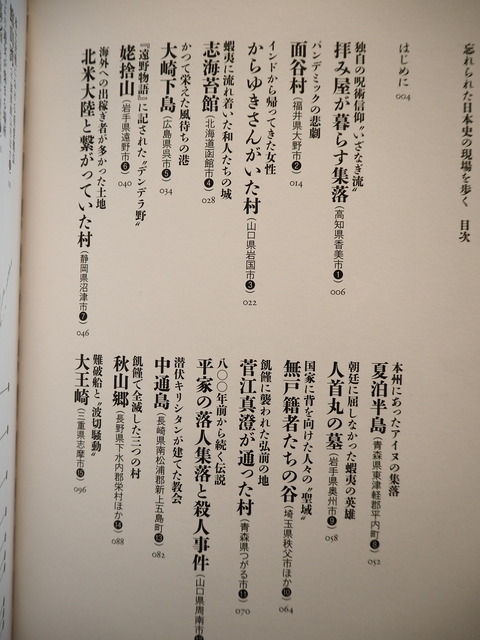 忘れられた日本史の現場を歩く　目次
はじめに 004
独自の呪術信仰“いざなぎ流”
拝み屋が暮らす集落（高知県香美市❶） 006
パンデミックの悲劇
面谷村（福井県大野市❷） 014
インドから帰ってきた女性
からゆきさんがいた村（山口県岩国市❸） 022
蝦夷に流れ着いた和人たちの城
志海苔館（北海道函館市❹） 028
かつて栄えた風待ちの港
大崎下島（広島県呉市❺） 034
『遠野物語』に記された“デンデラ野”
姥捨山（岩手県遠野市❻） 040
海外への出稼ぎ者が多かった土地
北米大陸と繋がっていた村（静岡県沼津市❼） 046
本州にあったアイヌの集落
夏泊半島（青森県東津軽郡平内町❽） 052
朝廷に屈しなかった蝦夷の英雄
人首丸の墓（岩手県奥州市❾） 058
国家に背を向けた人々の“聖域”
無戸籍者たちの谷（埼玉県秩父市ほか❿） 064
飢饉に襲われた弘前の地
菅江真澄が通った村（青森県つがる市⓫） 070
八〇〇年前から続く伝説
平家の落人集落と殺人事件（山口県周南市
潜伏キリシタンが建てた教会
中通島（長崎県南松浦郡新上五島町⓭） 082
飢饉で全滅した三つの村
秋山郷（長野県下水内郡栄村ほか⓮） 088
難破船と“波切騒動”
大王崎（三重県志摩市⓯） 096